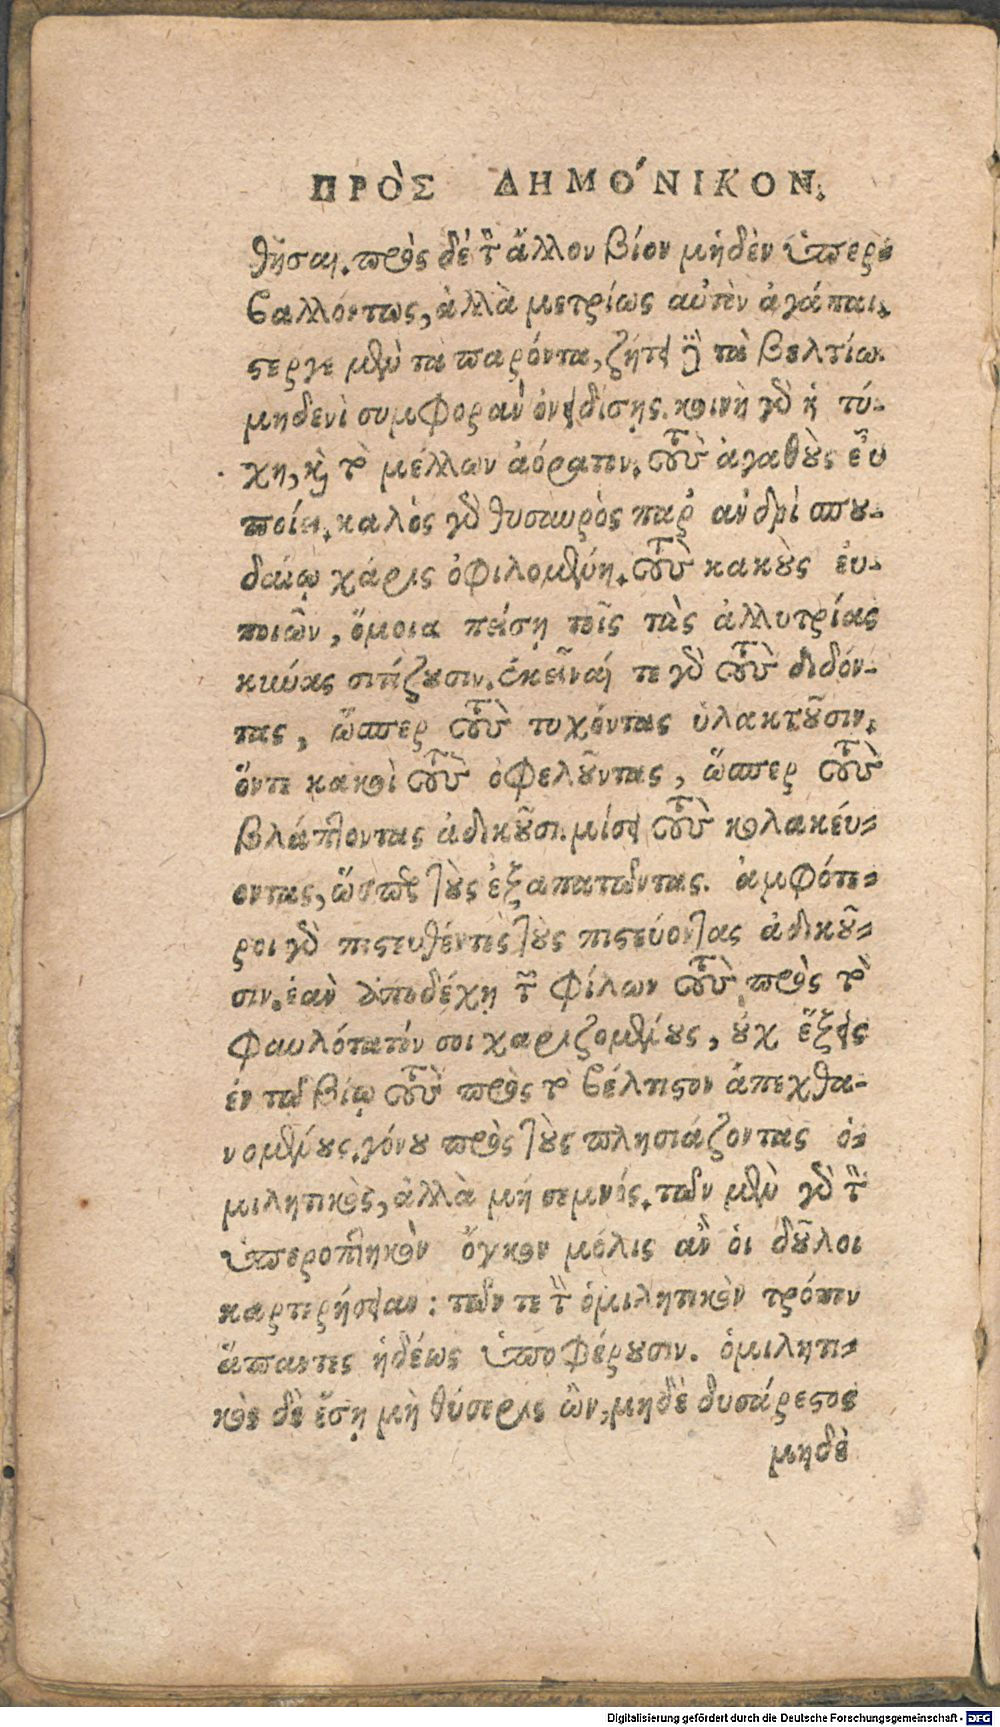 ΠΡῸΣ ΔΗΜΌΝΙΚΟΝ.
θῆσαι. πρὸς δὲ τὸν ἄλλον βίον μηδὲν ὑπερ-
βαλλόντως, ἀλλὰ μετρίως αὐτὴν ἀγάπαι.
στέργε μὲν τὰ παρόντα, ζήτει δὲ τὰ βελτίω.
μηδενὶ συμφορὰν ὀνειδίσῃς. κοινὴ γὰρ ἡ τύ-
χη, καὶ τὸ μέλλων ἀόρατον. τοὺς ἀγαθοὺς εὖ
ποίει. καλὸς γὰρ θυσαυρὸς παρ' ἀνδρὶ σπου-
δαίῳ χάρις ὀφιλομένη. τοὺς κακοὺς ἐυ-
ποιῶν, ὅμοια πείσῃ τοῖς τὰς ἀλλυτρίας
κκύας σιτίζουσιν. ἐκεῖναί τε γὰρ τοὺς διδόν-
τας, ὥσπερ τοὺς τυχόντας ὑλακτοῦσιν.
ὅντε κακοὶ τοὺς ὀφελοῦντας, ὥσπερ τοὺς
βλάπτοντας ἀδικοῦσι. μίσει τοὺς κολακέυ-
οντας, ὥσπερ τοὺς ἐξαπατῶντας. ἀμφότε-
ροι γὰρ πιστευθέντες τοὺς πιστεύοντας ἀδικοῦ-
σιν. ἐὰν ἀποδέχῃ τῶν φίλων τοὺς πρὸς τὸ
φαυλότατόν σοι χαριζομένους, οὐχ ἕξεις
ἐν τῷ βίῳ τοὺς πρὸς τὸ βέλτιστον ἀπεχθα-
νομένους. γόνου πρὸς τοὺς πλησιάζοντας ὁ-
μιλητικὸς, ἀλλὰ μή σεμνός. τῶν μὲν γὰρ τὸν
ὑπεροπτικὸν ὄγκον μόλις ἂν οἱ δοῦλοι
καρτερήσειαν: τῶν τε τὸν ὁμιλητικὸν τρόπον
ἅπαντες ἡδέως ὑποφέρουσιν. ὁμιλητι-
κὸς δὲ ἔσῃ μὴ θύσερις ὢν, μηδὲ δυσάρεστος
μηδὲ
Digitalisierung gefördert durch die Deutsche Forschungsgemeinschaft - DFG